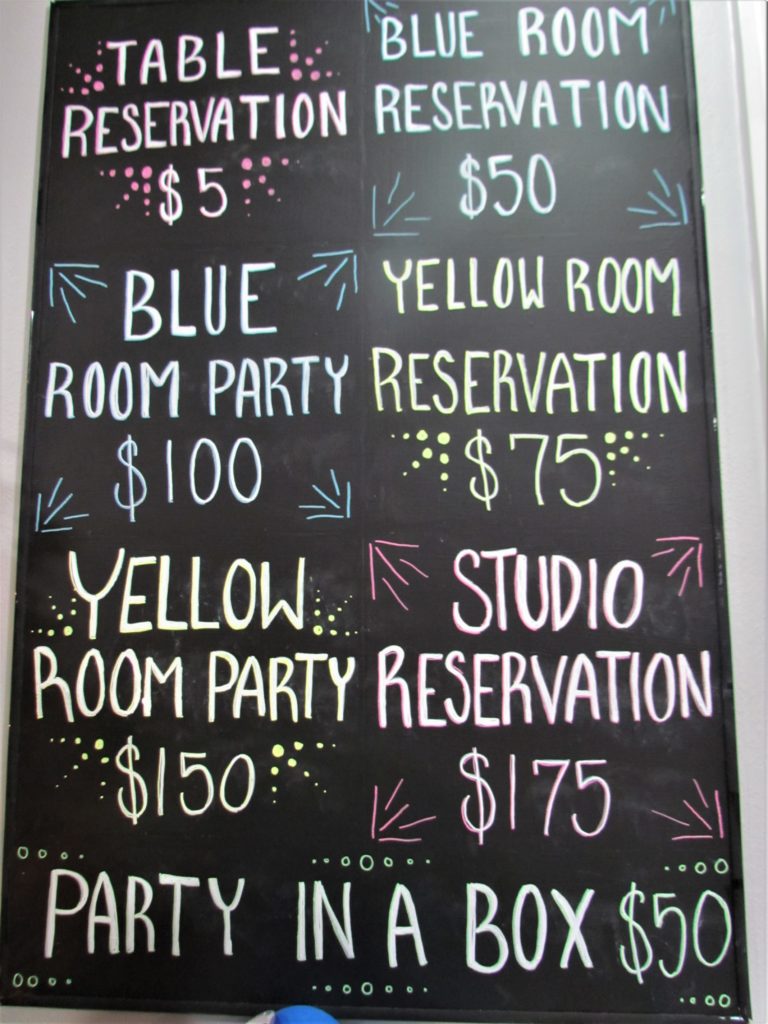 TABLE
RESERVATION
$5
BLUE ROOM
RESERVATION
$50
BLUE
ROOM PARTY
$100
YELLOW ROOM
RESERVATION
$75
YELLOW
ROOM PARTY
$150
STUDIO
RESERVATION
$175
PARTY IN A BOX $50